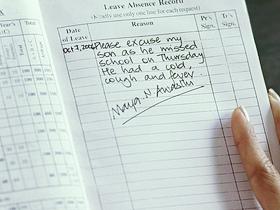 Leave Absence Record
(Kindly use only one line for each request)
Date of Leave
Reason
Pr's Sign.
Tr's Sign.
Total
Oct 3, 200 Please excuse my
son as he missed
school on Thursday
He had a cold,
cough and fever.
Maya N